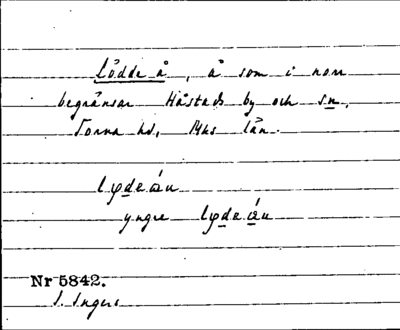 Lödde å, å som i norr
begränsar Håstads by och sn,
Torna hd, Mhs län.
lyde
yngre
Nr 5842.
I. Ingers